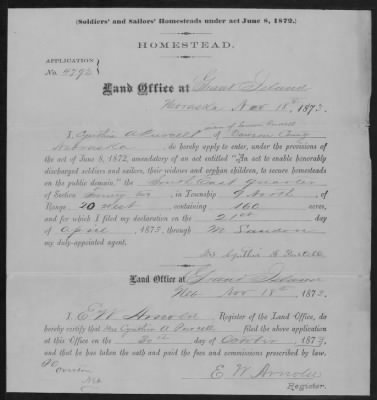 (Soldiers' and Sailors' Homesteads under act June 8, 1872.)
HOMESTEAD.
APPLICATION
No. 4792
Land Office at Grand Island
Nebraska Nov 18th 1873.
I, Cynthia A Purcell widow of Purcell
of Dawson County
Nebraska do hereby apply to enter, under the provisions
of the act of June 8, 1872, amendatory of an act entitled "An act to enable honorably
discharged soldiers and sailors, their widows and orphan children, to secure homesteads
on the public domain," the South East quarter
of Section Twenty two in Township 9 North of
Range 20 West containing 160 acres,
and for which I filed my declaration on the 21st day
of April, 1873 through M
my duly-appointed agent.
Mrs Cynthia A Purcell
Land Office at Grand Island
Neb Nov 18th, 1873.
I, E W Arnold, Register of the Land Office, do
hereby certify that Mrs Cynthia A Purcell filed the above application
at this Office on the day of October, 1873,
and that he has taken the oath and paid the fees and commissions prescribed by law.
Neb
E W Arnold
Register.